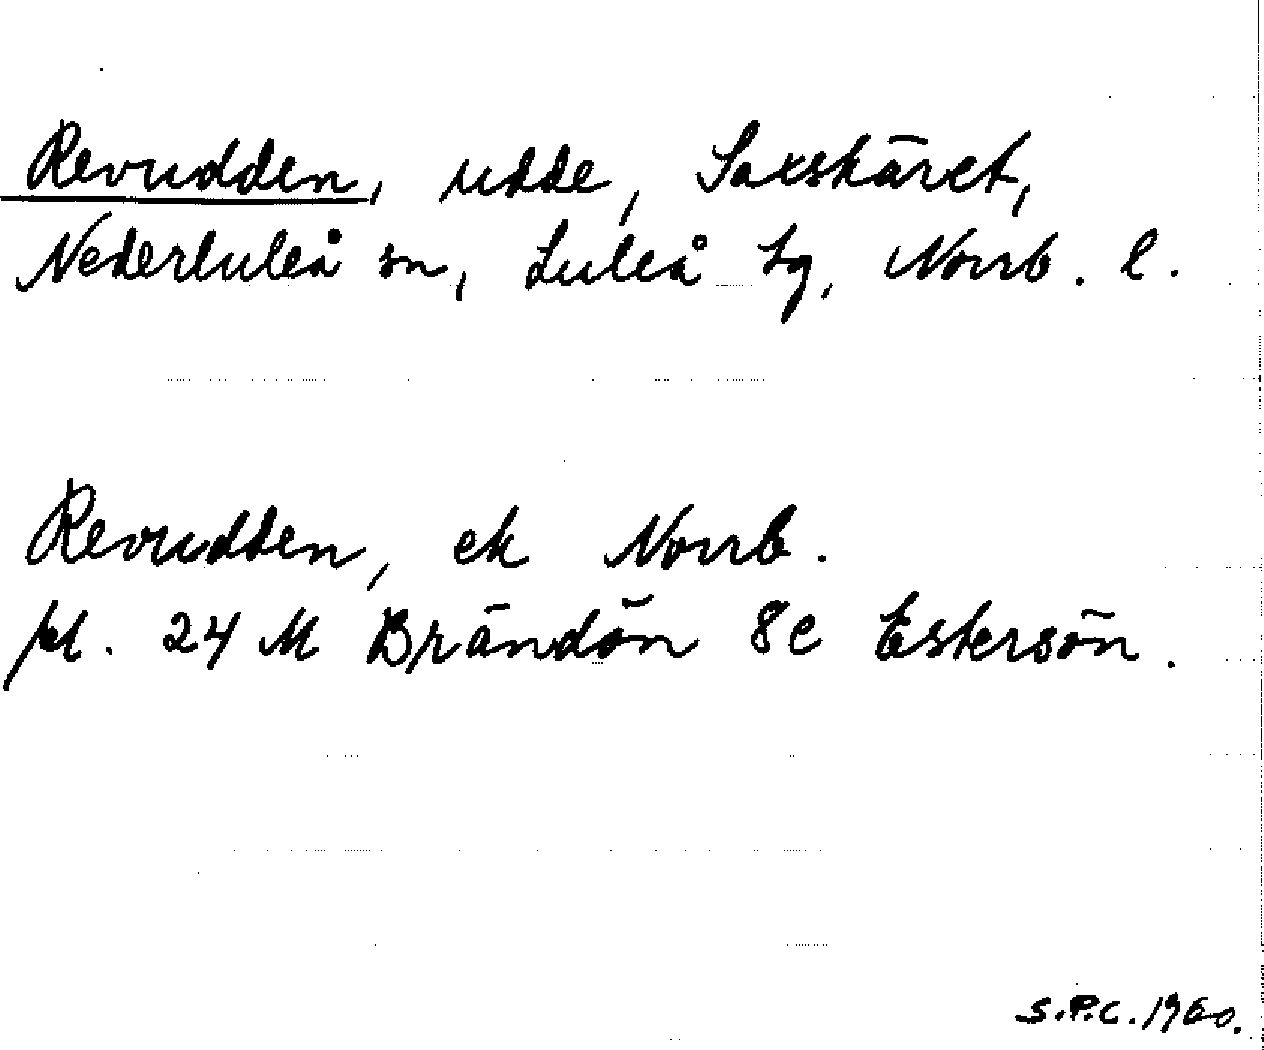 Revudden, udde, Saxskäret,
Nederluleå sn, Luleå tg, Norrb. l.
Revudden, ek Norrb.
pl. 24 M Brändön 8e Estersön.
S.P.C. 1960.